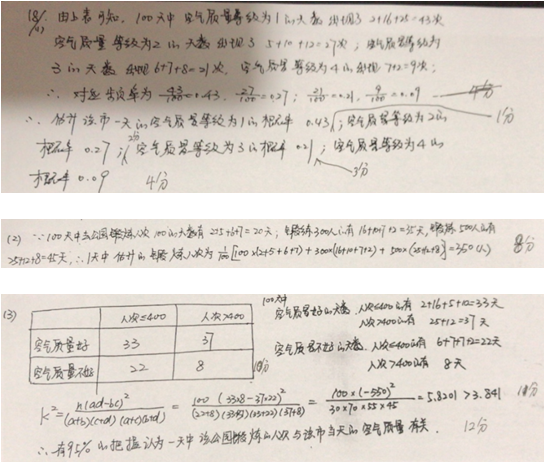 18/ (1) 由上表可知, 100天中 空气质量等级为1的天数 出现了 2+16+25=43次
空气质量 等级为2的天数 出现了 5+10+12=27次; 空气质量等级为
3的天数 出现 6+7+8=21次, 空气质量等级为4的出现 7+2=9次;
∴ 对应频率为 43/100=0.43, 27/100=0.27; 21/100=0.21, 9/100=0.09 4分
∴ 估计 该市一天的空气质量等级为1的概率 0.43; 空气质量等级为2的 1分
概率 0.27; 2分 空气质量等级为3的概率 0.21; 空气质量等级为4的
概率 0.09 4分 3分
(2) ∵100天中去公园锻炼人次 100的天数有 2+5+6+7=20天; 300人的有 16+10+7+2=35天, 500人的有
25+12+8=45天, ∴1天中 估计的锻炼人次为 1/100[100×(2+5+6+7)+300×(16+10+7+2)+500×(25+12+8)]=350(人) 8分
(3)
人次≤400 人次>400
空气质量好 33 37
空气质量不好 22 8 10分
100天中
空气质量好的天数, 人次≤400的有 2+16+5+10=33天
人次>400的有 25+12=37天
空气质量不好的天数, 人次≤400的有 6+7+7+2=22天
人次>400的有 8天
K²=n(ad-bc)²/(a+b)(c+d)(a+c)(b+d) = 100(33×8-37×22)²/(22+8)(33+37)(33+22)(37+8) = 100×(-550)²/30×70×55×45 = 5.8201>3.841 11分
∴有95%的把握认为一天中该公园锻炼的人次与该市当天的空气质量有关. 12分